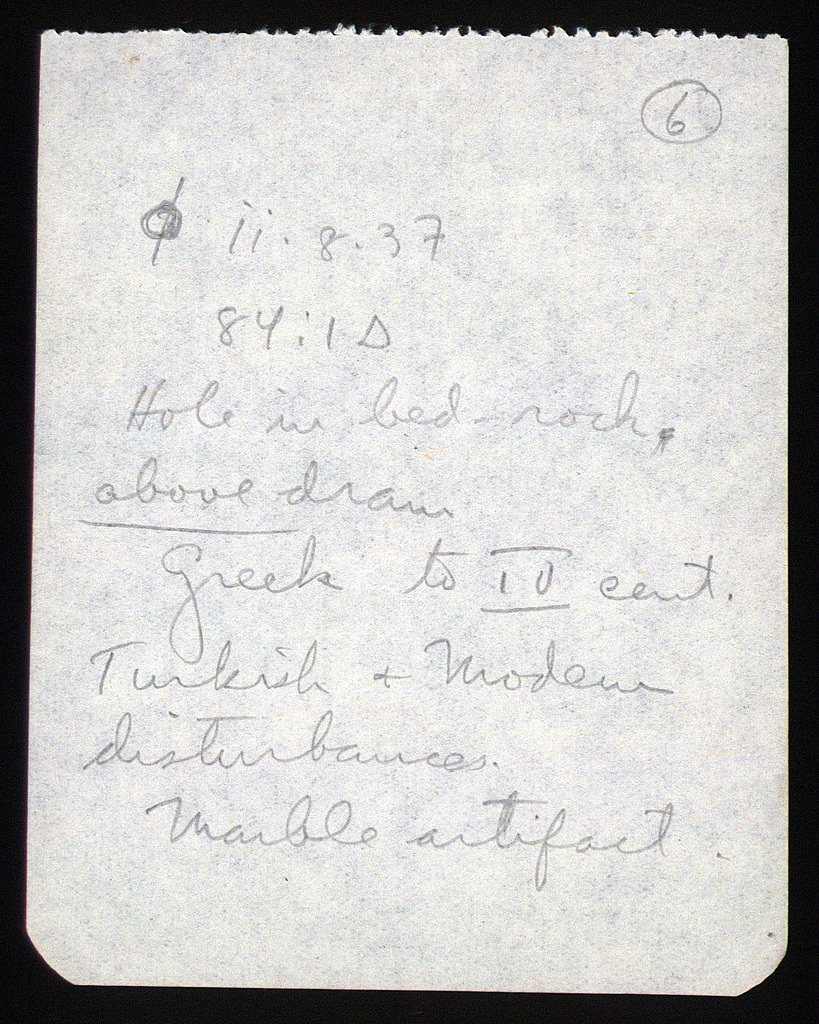 6
φ ii.8.37
84:1Δ
Hole in bed-rock,
above drain
Greek to IV cent.
Turkish + Modern
disturbances.
Marble artifact.